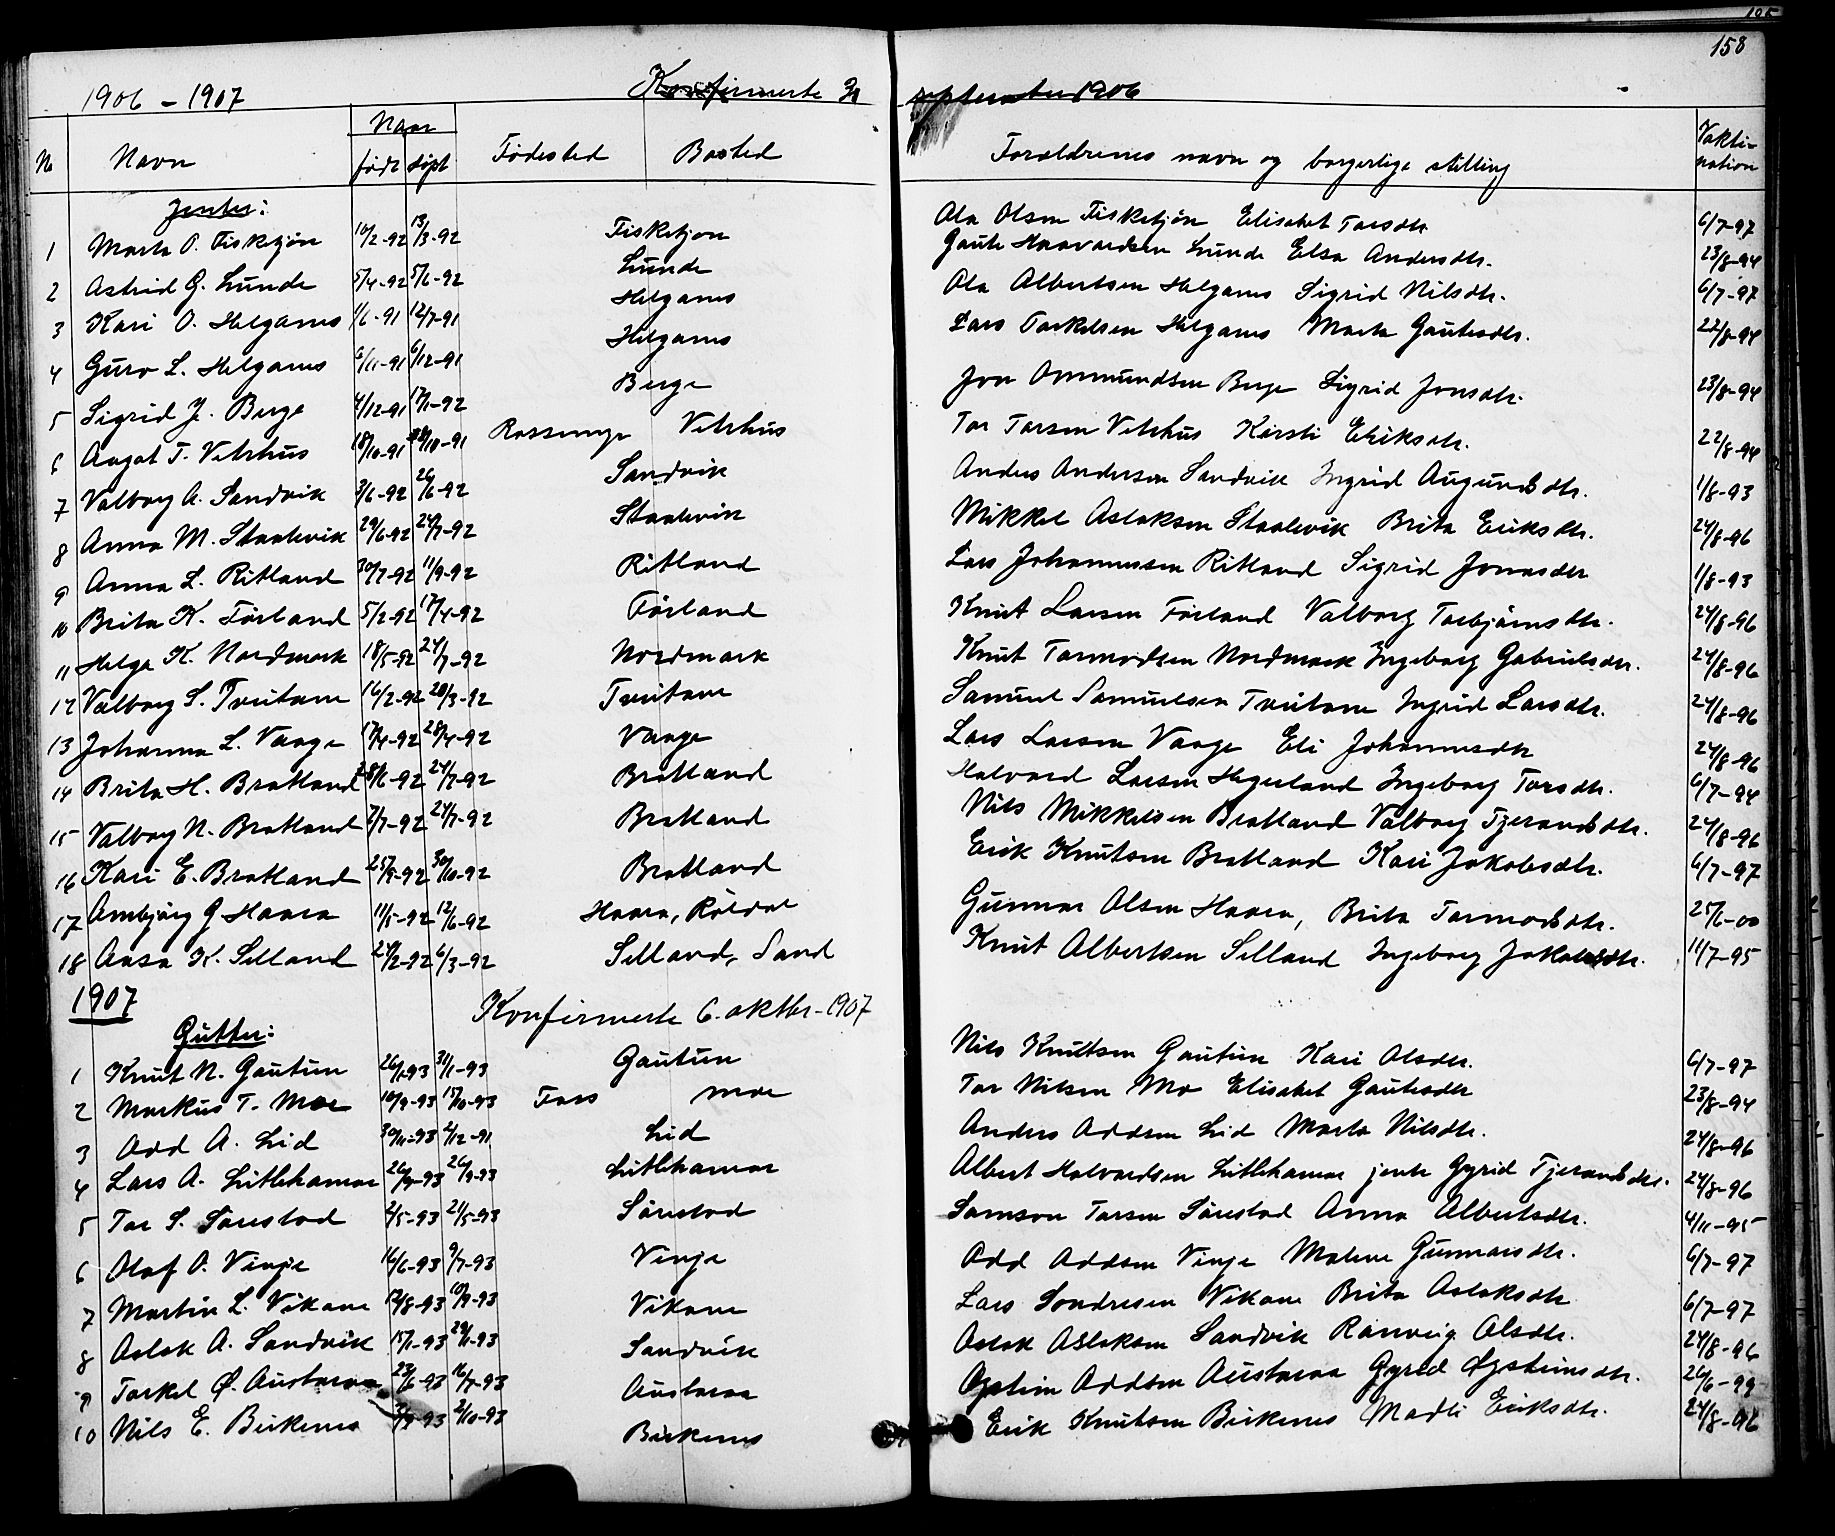 158
1906 - 1907 Konfirmerte 30 september 1906
No Navn Naar født døpt Fødested Bosted Foreldrenes navn og borgerlige stilling Vaksi-nation
Jenter:
1 Marta O. Fisketjøn 10/2-92 13/3-92 Fisketjøn Ola Olsen Fisketjøn Elisabet Tarsdtr 6/7-97
2 Astrid G. Lunde 5/4-92 5/6-92 Lunde Gaute Haavardsen Lunde Elsa Andersdtr. 23/8-94
3 Kari O. Helganes 1/6-91 12/7-91 Helganes Ola Albertsen Helganes Sigrid Nilsdtr. 6/7-97
4 Guro L. Helganes 6/11-91 6/12-91 Helganes Lars Torkelsen Helganes Marta Gautesdtr. 22/8-94
5 Sigrid J. Berge 4/12-91 17/1-92 Berge Jon Ommundsen Berge Sigrid Jonsdtr. 23/8-94
6 Aagot T. Vetrhus 18/10-91 /10-91 Vetrhus Tor Torsen Vetrhus Kirsti Eriksdtr. 22/8-94
7 Valborg A. Sandvik 3/6-92 26/6-92 Sandvik Anders Andersen Sandvik Ingrid Augundsdtr. 1/8-93
8 Anna M. Staalevik 29/6-92 24/7-92 Staalevik Mikkel Aslaksen Staalevik Brita Eriksdtr. 24/8-96
9 Anna L. Ritland 30/7-92 11/9-92 Ritland Lars Johannessen Ritland Sigrid Jonasdtr 1/8-93
10 Brita K. Førland 5/2-92 17/4-92 Førland Knut Larsen Førland Valborg Torbjørnsdtr. 24/8-96
11 Helga K. Nordmork 18/5-92 24/7-92 Nordmark Knut Tormodsen Nordmark Ingeborg Gabrielsdtr. 24/8-96
12 Valborg S. Tveitane 16/2-92 20/3-92 Tveitane Samuel Samuelsen Tveitane Ingrid Larsdtr. 24/8-96
13 Johanna L. Vaage 17/4-92 28/4-92 Vaage Lars Larsen Vaage Eli Johannesdtr 24/8-96
14 Brita H. Bratland 28/6-92 24/7-92 Bratland Halvard Larsen Hegerland Ingeborg Torsdtr. 6/7-94
15 Valborg N. Bratland 2/7-92 24/7-92 Bratland Nils Mikkelsen Bratland Valborg Tjerandsdtr. 24/8-96
16 Kari E. Bratland 25/8-92 30/10-92 Bratland Erik Knutsen Bratland Kari Jakobsdtr. 6/7-97
17 Arnbjørg G Haara 11/5-92 12/6-92 Haara, Røldal Gunnar Olsen Haara, Brita Tormodsdtr. 25/6-00
18 Aasa K. Selland 24/2-92 6/3-92 Selland, Sand Knut Albertsen Selland Ingeborg Jakobsdtr. 11/7-95
1907 Konfirmerte 6. oktbr-1907
Gutter:
1 Knut N. Gautun 26/1-93 31/1-93 Gautun Nils Knutsen Gautun Kari Olsdtr. 6/7-97
2 Markus T. Moe 10/9-93 15/10-93 Foss moe Tor Nilsen Mo Elisabet Gautesdtr 23/8-94
3 Odd A. Lid 30/11-93 2/12-91 Lid Anders Oddsen Lid Marta Nilsdtr. 24/8-96
4 Lars A. Litlehamar 26/9-93 26/9-93 Litlehamar Albert Halvardsen Litlehamar jente Gyrid Tjerandsdtr. 24/8-96
5 Tor S. Sørestad 2/5-93 21/5-93 Sørestad Samson Torsen Sørestad Anna Albertsdtr. 4/11-95
6 Olaf O. Vinje 16/6-93 9/7-93 Vinje Odd Oddsen Vinje Malene Gunnarsdtr. 6/7-97
7 Martin L. Vikane 12/8-93 10/9-93 Vikane Lars Sondresen Vikane Brita Aslaksdtr 6/7-97
8 Aslak A. Sandvik 15/1-93 29/1-93 Sandvik Aslak Aslaksen Sandvik Ranveig Olsdtr. 24/8-96
9 Torkel Ø. Austaraa 23/6-93 16/7-93 Austaraa Øystein Oddsen Austaraa Gyred Øysteinsdtr. 26/6-99
10 Nils E. Birkenes /9-93 2/10-93 Birkenes Erik Knutsen Birkenes Madli Eriksdtr. 24/8-96